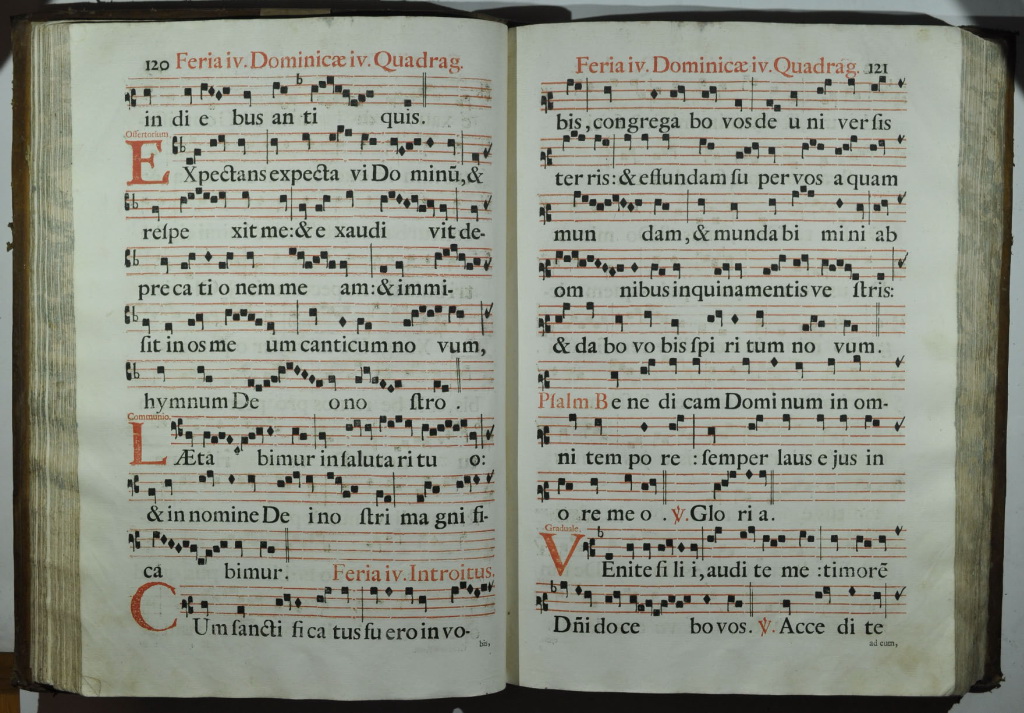 120 Feria iv. Dominicæ iv. Quadrag.
in di e bus an ti quis.
Offertorium
EXpectans expecta vi Do minũ, &
reſpe xit me: & e xaudi vit de-
pre ca ti o nem me am: & immi-
ſit in os me um canticum no vum,
hymnum De o no ſtro.
Communio.
LÆta bimur in ſaluta ri tu o:
& in nomine De i no ſtri ma gni fi-
ca bimur. Feria iv. Introitus.
CUm ſancti fi ca tus fu ero in vo-
bis,
Feria iv. Dominicæ iv. Quadrag. 121
bis, congrega bo vos de u ni ver ſis
ter ris: & effundam ſu per vos a quam
mun dam, & munda bi mi ni ab
om nibus inquinamentis ve ſtris:
& da bo vo bis ſpi ri tum no vum.
Pſalm. Be ne di cam Domi num in om-
ni tem po re : ſemper laus e jus in
o re me o . ℣. Glo ri a.
Graduale.
VEnite fi li i, audi te me : timorẽ
Dñi do ce bo vos. ℣. Acce di te
ad eum,